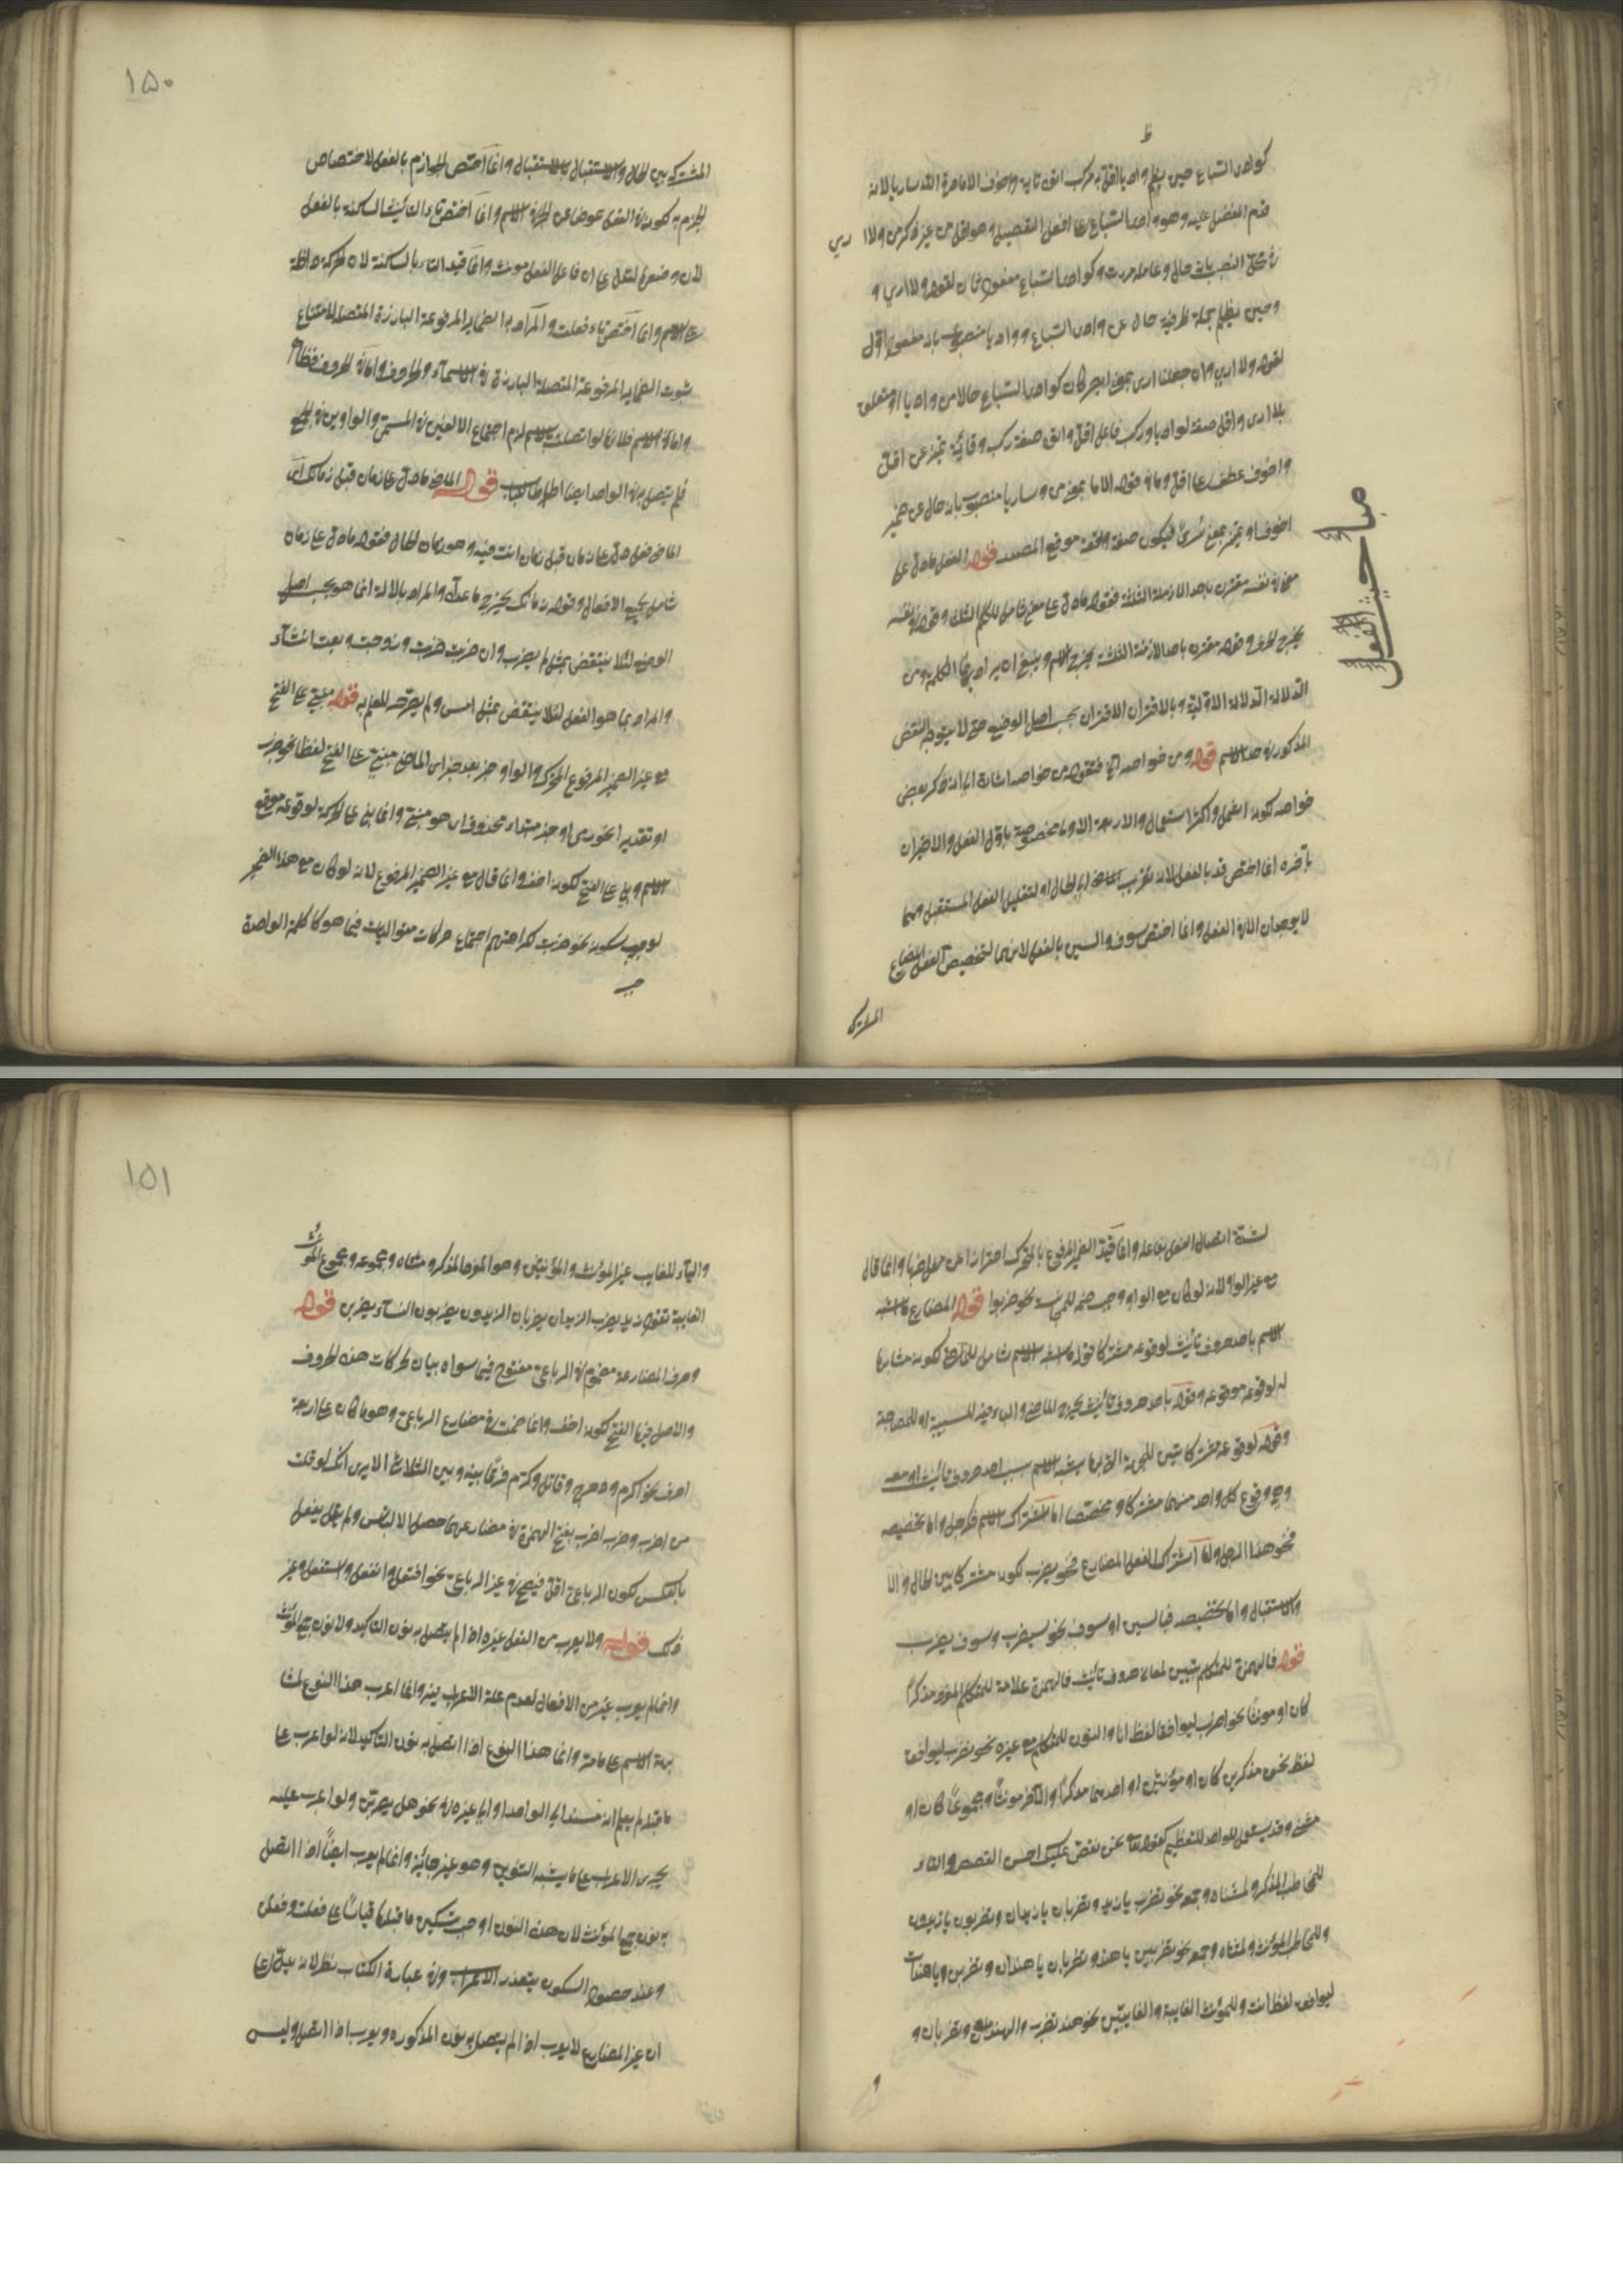 كوادى السباع حين يظلم واديا اقل به ركب اتوه تاية واخوف الا ما وقى الله ساريا لانه
قدم المفضل عليه وهو وادى السباع على افعل التفضيل وهو اقل من غير ذكر من ولا ارى
في محل النصب بانه حال وعامله مررت وكوادى السباع مفعول ثان لقوله ولا ارى و
وحين يظلم جملة ظرفية حال عن وادى السباع وواديا منصوب بانه مفعول اول
لقوله ولا ارى وان جعلنا ارى بمعنى ابصر كان كوادى السباع حالا من واديا او متعلق
بلا ارى واقل صفة لواديا وركب فاعل اقل واتوه صفة ركب وتائية تميز عن اقل
واخوف عطف على اقل وما في قوله الا ما بمعنى من وساريا منصوب بانه حال عن ضمير
اخوف او تميز بمعنى سرى فيكون صفة واقعة موقع المصدر قوله الفعل ما دل على
معنى في نفسه مقترن باحد الازمنة الثلثة فقوله ما دل على معنى شامل للكلم الثلث وقوله في نفسه
يخرج الحرف وقوله مقترن باحد الازمنة الثلثة يخرج الاسم وينبغي ان يراد بما الكلمة ومن
الدلالة الدلالة الاولية وبالاقتران الاقتران بحسب اصل الوضع حتى لا يتوجه النقض
المذكور في حد الاسم قوله ومن خواصه الخ فقوله من خواصه اشارة الى انه ذكر بعض
خواصه لكونه اشمل واكثر استعمالا والاربعة الاول مخصوصة باول الفعل والاخيران
بآخره انما اختص قد بالفعل لانه لتقريب الماضى الى الحال او لتقليل الفعل المستقبل وهما
لا يوجدان الا في الفعل وانما اختص سوف والسين بالفعل لانهما لتخصيص الفعل المضارع
المشترك
مباحث الفعل
١٥٠
المشترك بين الحال والاستقبال بالاستقبال وانما اختص الجوازم بالفعل لاختصاص
الجزم به لكونه في الفعل عوضا عن الجر في الاسم وانما اختص تاء التأنيث الساكنة بالفعل
لان وضعها لتدل على ان فاعل الفعل مونث وانما قيد التاء بالساكنة لان المتحركة داخلة
على الاسم وانما اختص تاء فعلت والمراد به الضماير المرفوعة البارزة المتصلة لامتناع
ثبوت الضماير المرفوعة المتصلة البارزة في الاسماء والحروف اما في الحروف فظاهر
واما في الاسم فلانها لو اتصلت بالاسم لزم اجتماع الالفين في المثنى والواوين في الجمع
فلم يتصل به في الواحد ايضا اطرادا للباب قوله الماضى ما دل على زمان قبل زمانك اى
الماضى فعل دل على زمان قبل زمان انت فيه وهو زمان الحال فقوله ما دل على زمان
شامل لجميع الافعال وقوله قبل زمانك يخرج ما عداه والمراد بالدلالة انما هو بحسب اصل
الوضع لئلا ينتقض بمثل لم يضرب وان ضربت ضربت وزوجت وبعت انشاء
والمراد بما هو الفعل لئلا ينتقض بمثل امس ولم يصرحه للعلم به قوله مبنى على الفتح
مع غير الضمير المرفوع المتحرك والواو خبر بعد خبر اى الماضى مبنى على الفتح لفظا نحو ضرب
او تقديرا نحو رمى او خبر مبتداء محذوف اى هو مبنى وانما بنى على الحركة لوقوعه موقع
الاسم وبنى على الفتح لكونه اخف وانما قال مع غير الضمير المرفوع لانه لو كان مع هذا الضمير
لوجب سكونه نحو ضربت كراهتهم اجتماع حركات متواليات فيما هو كالكلمة الواحدة
لشدة اتصال الفعل بفاعله وانما قيد الضمير المرفوع بالمتحرك احترازا عن مثل ضربا وانما قال
مع غير الواو لانه لو كان مع الواو وجب ضمه للمجانسة نحو ضربوا قوله المضارع ما اشبه
الاسم باحد حروف نأيت لوقوعه مشتركا قوله ما اشبه الاسم شامل للماضى لكونه مشابها
له لوقوعه موقعه وقوله باحد حروف نأيت يخرج الماضى والباء فيه للسببية او للمصاحبة
وقوله لوقوعه مشتركا تبيين للجهة التى بها يشبه الاسم بسبب احد حروف نأيت او معه
وهو وقوع كل واحد منهما مشتركا وتخصيصا اما اشتراك الاسم فكرجل واما تخصيصه
فنحو هذا الرجل واما اشتراك الفعل المضارع فنحو يضرب لكونه مشتركا بين الحال والا
والاستقبال واما تخصيصه فبالسين او سوف نحو سيضرب وسوف يضرب
قوله فالهمزة للمتكلم تبيين لمعانى حروف نأيت فالهمزة علامة للمتكلم المفرد مذكرا
كان او مونثا نحو اضرب ليوافق لفظ انا والنون للمتكلم مع غيره نحو نضرب ليوافق
لفظ نحن مذكرين كان او مؤنثين او احدهما مذكرا والاخر مونثا ومجموعا كان او
مثنى وقد يستعمل للواحد للتعظيم كقوله تعالى نحن نقص عليك احسن القصص والتاء
للمخاطب المذكر ولمثناه وجمعه نحو تضرب يا زيد وتضربان يا زيدان وتضربون يا زيدون
وللمخاطب المؤنث ولمثناه وجمعه نحو تضربين يا هند وتضربان يا هندان وتضربن ويا هندات
ليوافق لفظ انت وللمؤنث الغايبة والغايبتين نحو هند تضرب والهندان تضربان و
و
١٥١
والياء للغايب غير المؤنث والمؤنثين وهو المفرد المذكر ومثناه ومجموعه ومجموع المؤنث
الغايبة تقول زيد يضرب الزيدان يضربان الزيدون يضربون النساء يضربن قوله
وحرف المضارعة مضموم في الرباعى مفتوح فيما سواه بيان لحركات هذه الحروف
والاصل فيها الفتح لكونه اخف وانما ضمت في مضارع الرباعى وهو ما كان على اربعة
احرف نحو اكرم ودحرج وقاتل وكرم فرقا بينه وبين الثلاثى الا يرى انك لو قلت
من اضرب وضرب اضرب بفتح الهمزة في مضارعهما حصل الالتباس ولم يفعل
بالعكس لكون الرباعى اقل فيصح في غير الرباعى نحو افتعل وانفعل واستفعل وغير
ذلك قوله ولا يعرب من الفعل غيره اذا لم يتصل به نون التأكيد ولا نون جمع المؤنث
وانما لم يعرب غيره من الافعال لعدم علة الاعراب فيه وانما اعرب هذا النوع لمشا
بهة الاسم على ما مر وانما هذا النوع اذا اتصل به نون التاكيد لانه لو اعرب على
ما قبلها لم يعلم انه مسند الى الواحد او الى غيره في نحو هل يضربن ولو اعرب عليه
يجرى الاعراب على ما يشبه التنوين وهو غير جائز وانما لم يعرب ايضا اذا اتصل
به نون جمع المؤنث لان هذه النون اوجبت تسكين ما قبلها قياسا على فعلت وفعلن
وعند حصول السكون يتعذر الاعراب وفى عبارة الكتاب نظر لانه يدل على
ان غير المضارع لا يعرب اذا لم يتصل به نون المذكوره ويعرب اذا اتصل وليس